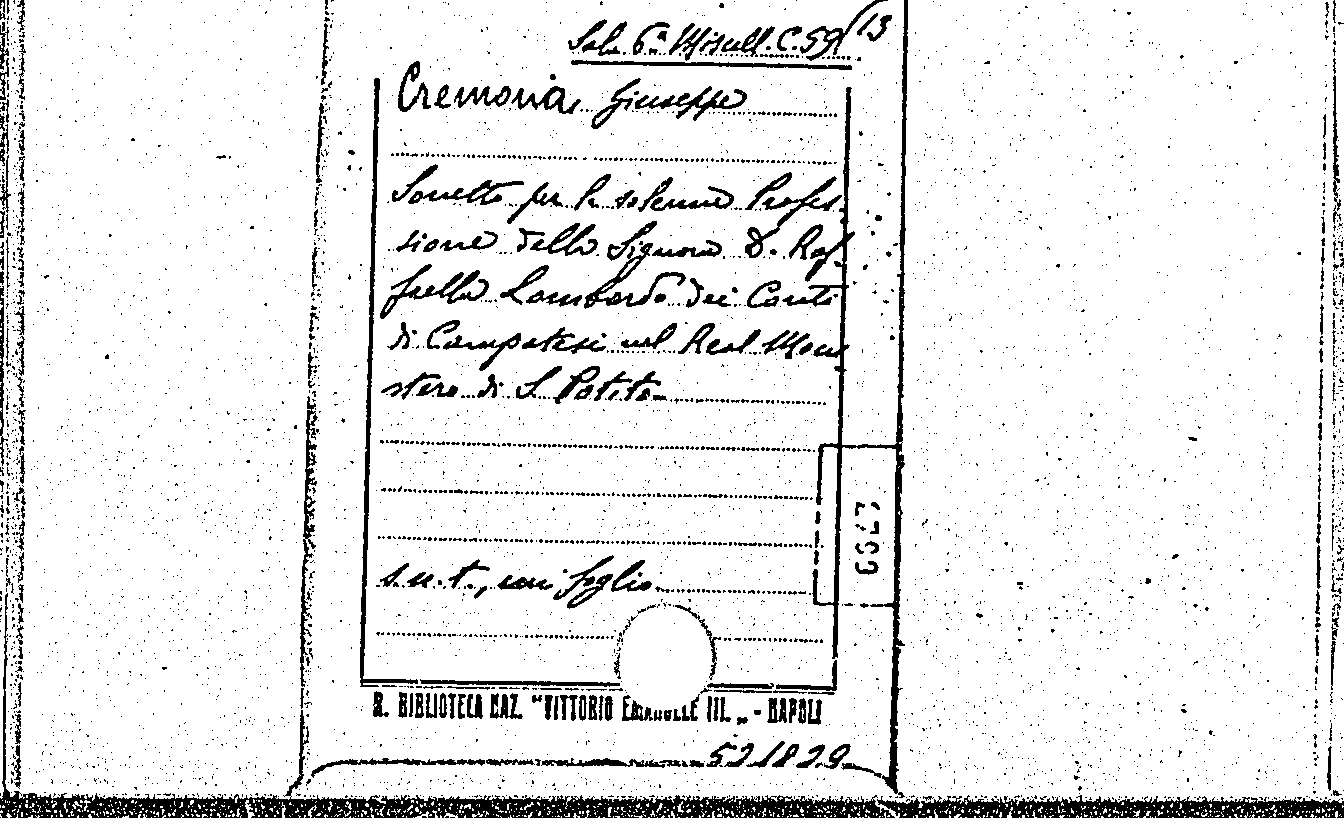 Sala 6ª Miscell. C. 59/13
Cremona, Giuseppe
Sonetto per la solenne Profes-
sione della Signora D. Raf-
faella Lombardo dei Conti
di Campatesi nel Real Mona
stero di S. Potito.
s.n.t., uni foglio.
6627
R. BIBLIOTECA NAZ. "VITTORIO EMANUELE III. „ - NAPOLI
521829